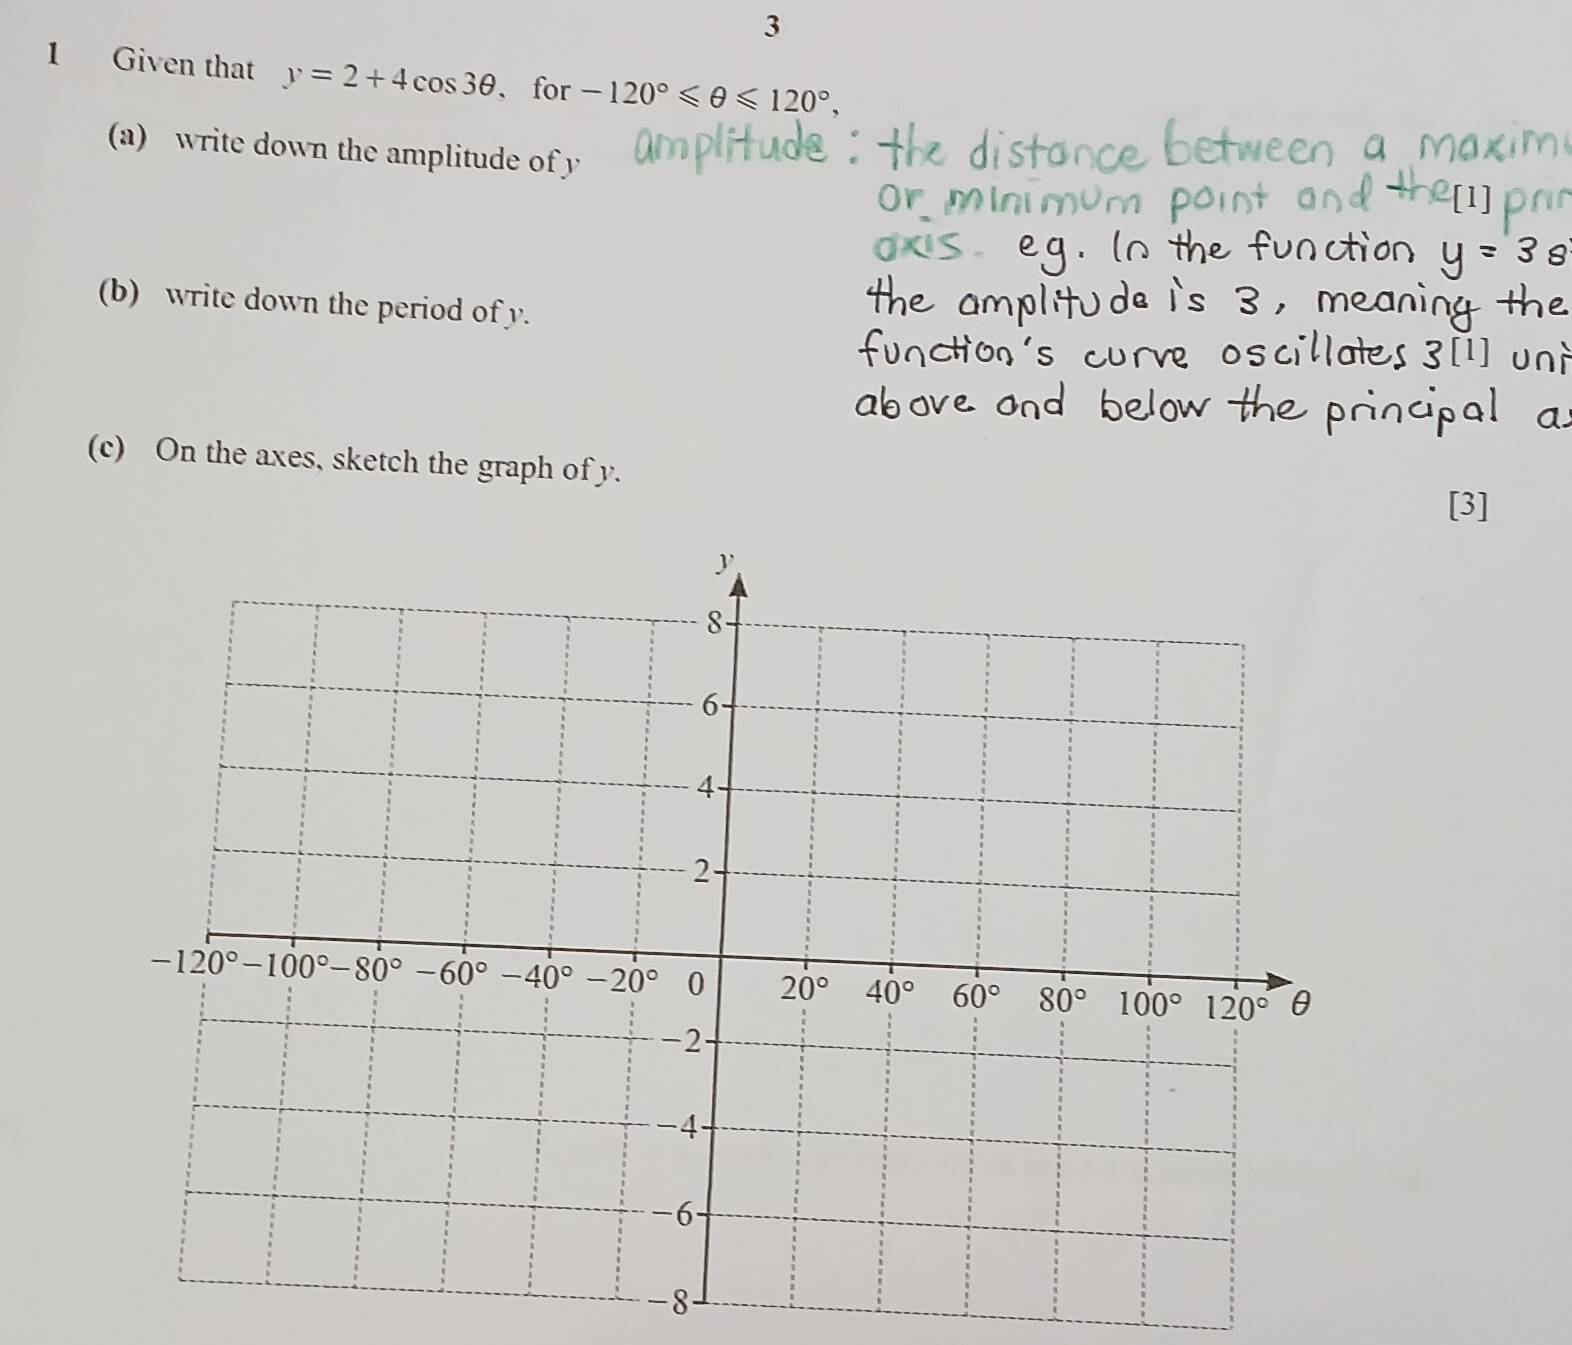 3
1 Given that y = 2 + 4 cos 3θ, for −120° ⩽ θ ⩽ 120°,
(a) write down the amplitude of y
amplitude: the distance between a
or minimum point and the [1]
axis. eg. In the function y = 3
(b) write down the period of y.
the amplitude is 3, meaning the
function's curve oscillates 3 [1]
above and below the principal
(c) On the axes, sketch the graph of y.
[3]
y
8
6
4
2
−120° −100° −80° −60° −40° −20° 0 20° 40° 60° 80° 100° 120° θ
−2
−4
−6
−8